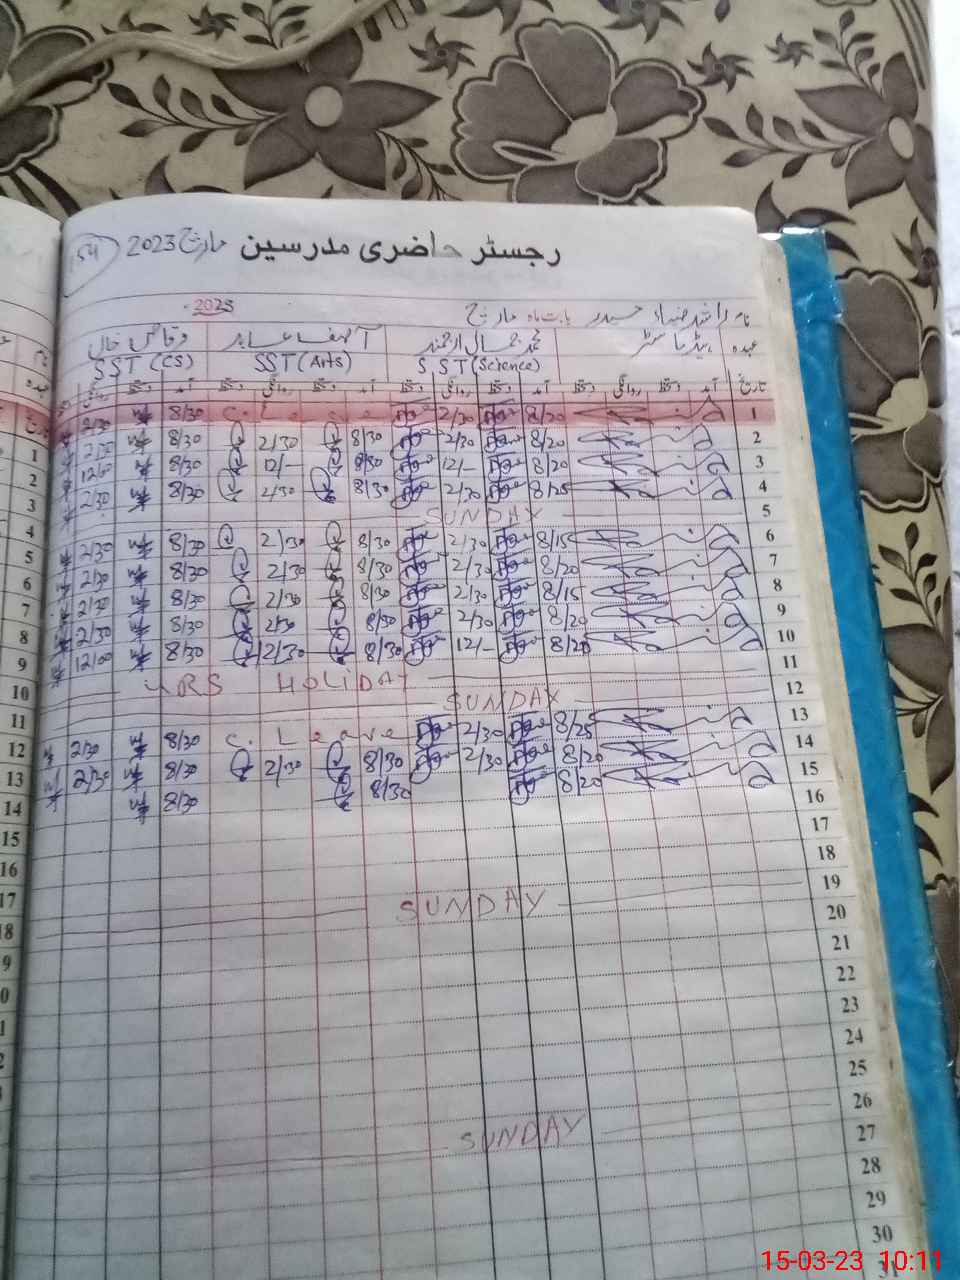 رجسٹر حاضری مدرسین مارچ 2023
54
نام راشد ضیاء حیدر بابت ماہ مارچ 2023
عہدہ ہیڈ ماسٹر
S.ST (Science)
آصف عابد
SST (Arts)
وقاص خان
SST (CS)
تاریخ آمد دستخط روانگی دستخط آمد دستخط روانگی دستخط آمد دستخط روانگی دستخط آمد دستخط روانگی
1 8/20 2/30 C. Leave 8/30 2/30
2 8/20 2/30 8/30 2/30 8/30 2/30
3 8/20 12/- 8/30 12/- 8/30 12/00
4 8/25 2/30 8/30 2/30 8/30 2/30
5 SUNDAY
6 8/15 2/30 8/30 2/30 8/30 2/30
7 8/20 2/30 8/30 2/30 8/30 2/30
8 8/15 2/30 8/30 2/30 8/30 2/30
9 8/20 2/30 8/30 2/30 8/30 2/30
10 8/20 12/- 8/30 12/30 8/30 12/00
11 URS HOLIDAY
12 SUNDAY
13 8/25 2/30 C. Leave 8/30 2/30
14 8/20 2/30 8/30 2/30 8/30 2/30
15 8/20 8/30 8/30
16
17
18
19 SUNDAY
20
21
22
23
24
25
26 SUNDAY
27
28
29
30
31
1
2
3
4
5
6
7
8
9
10
11
12
13
14
15
16
17
18
15-03-23 10:11